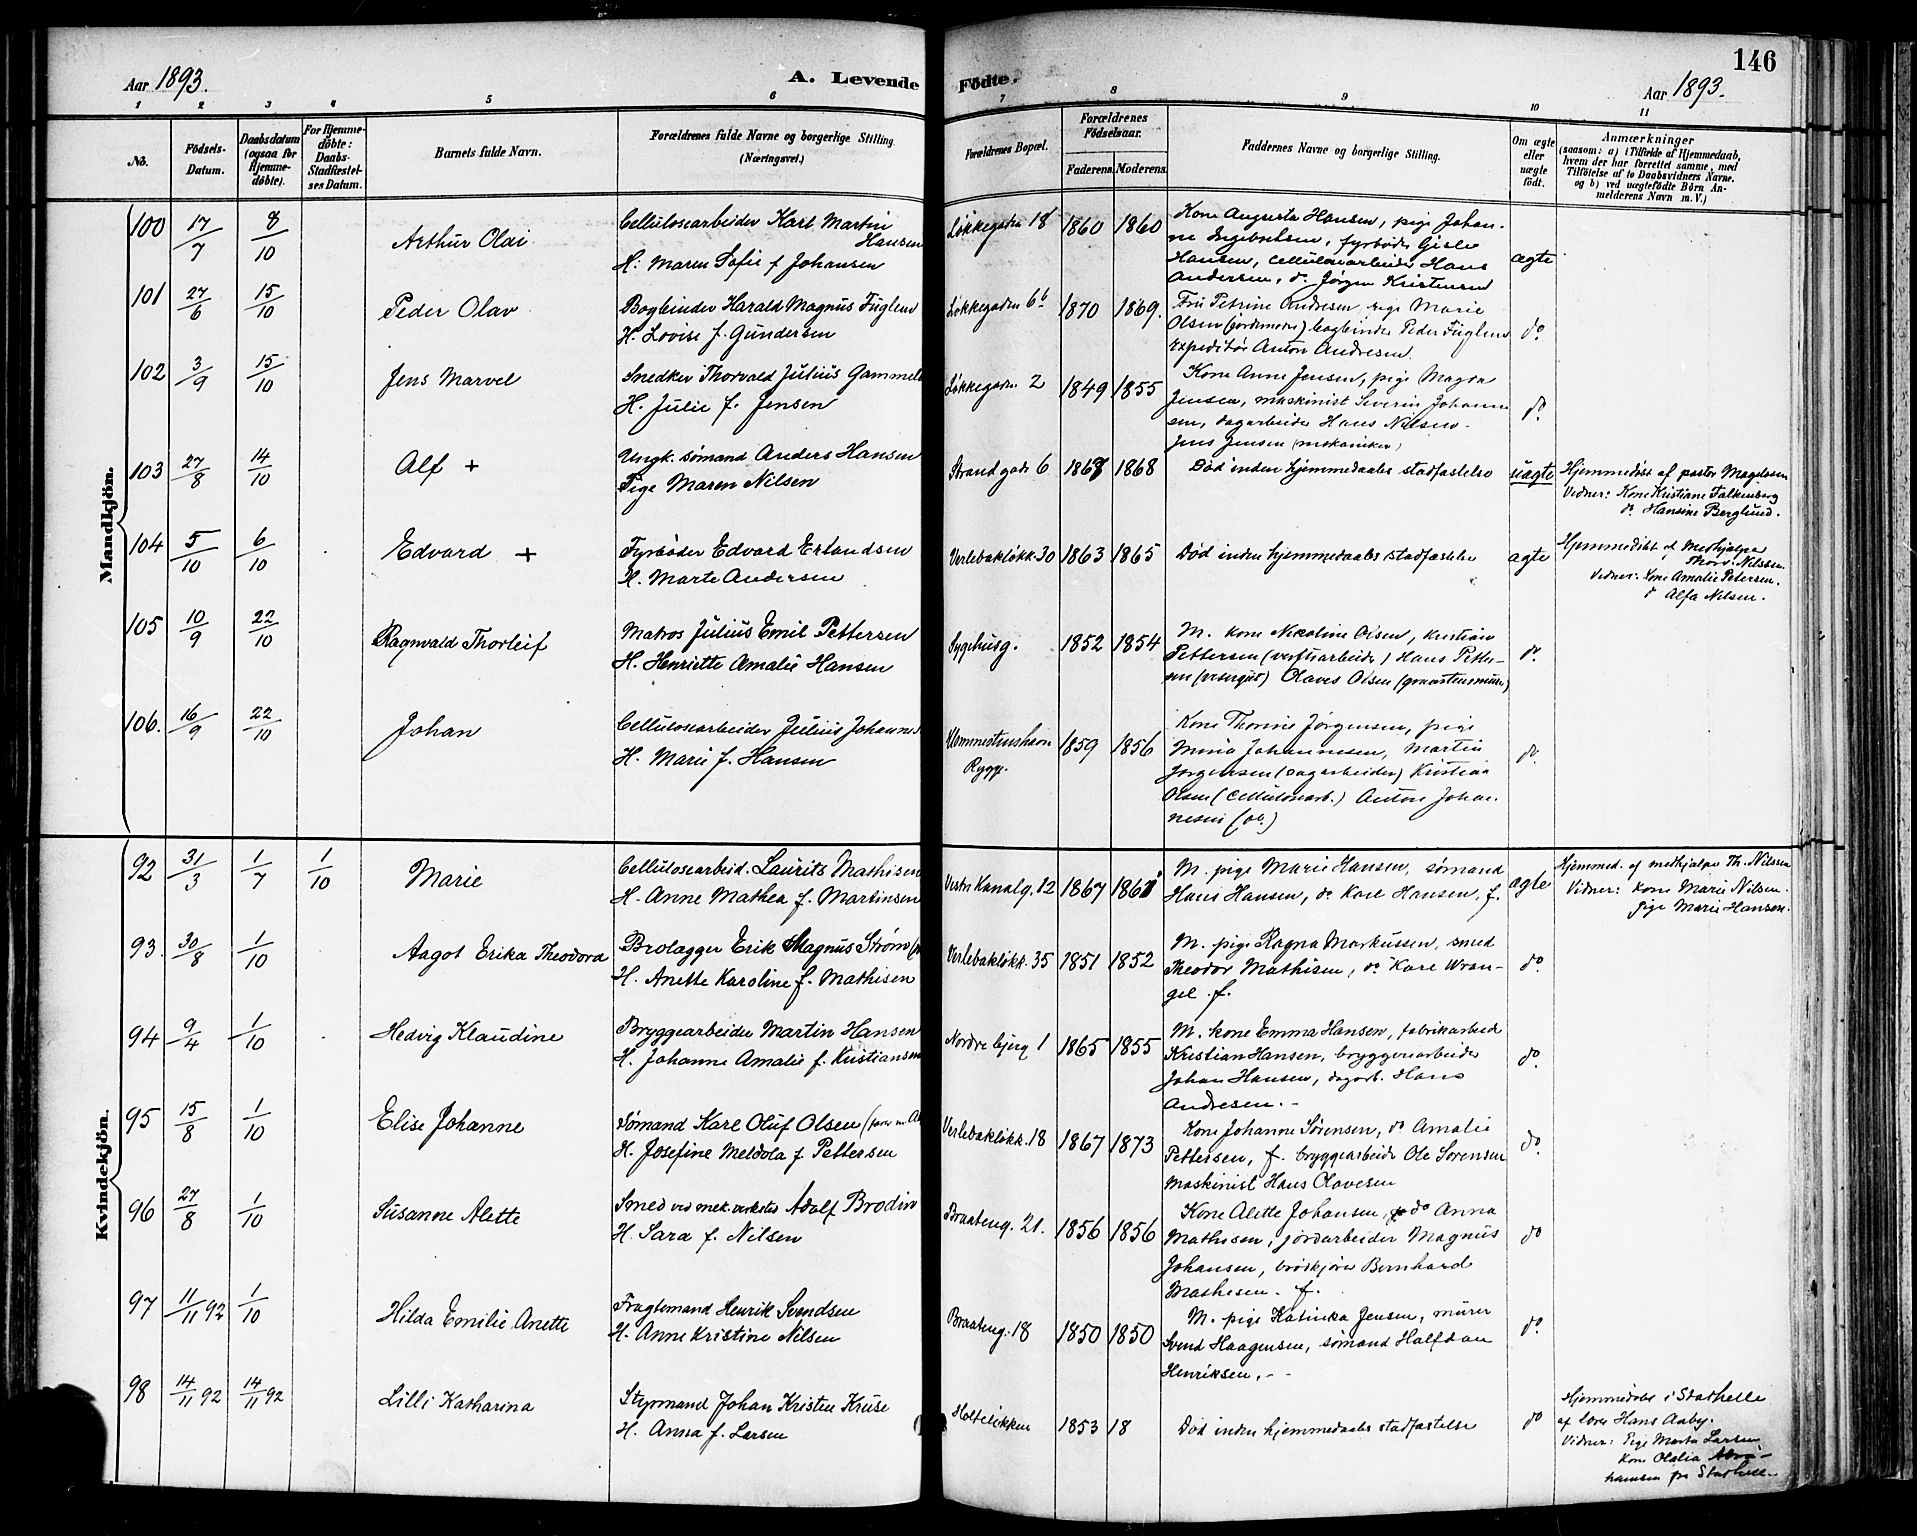 Aar 1893.
A. Levende
Födte.
Aar 1893.
146
1 2 3 4 5 6 7 8 9 10 11
No.
Födsels-
Datum.
Daabsdatum
(ogsaa for
Hjemme-
döbte).
For Hjemme-
döbte:
Daabs-
Stadfæstel-
ses Datum.
Barnets fulde Navn.
Forældrenes fulde Navne og borgerlige Stilling.
(Næringsvei.)
Forældrenes Bopæl.
Forældrenes
Födselsaar.
Faderens. Moderens.
Faddernes Navne og borgerlige Stilling.
Om ægte
eller
uægte
født.
Anmærkninger
(saasom: a) i Tilfælde af Hjemmedaab,
hvem der har forrettet samme, med
Tilföielse af to Daabsvidners Navne.
og b) ved uægtefödte Börn An-
melderens Navn m. V.)
Mandkjön.
100 17/7 8/10 Arthur Olai
Cellulosearbeider Karl Martin
Hansen
H: Maren Sofie f Johansen
Løkkegaden 18 1860 1860
Kone Augusta Hansen, pige Johan-
ne Ingebretsen, fyrbøder Gisle
Hansen, cellulosearbeider Hans
Andersen, do. Jørgen Kristensen
ægte
101 27/6 15/10 Peder Olav
Bogbinder Harald Magnus Fuglem
H. Lovise f. Gundersen
Løkkegaden 6b 1870 1869.
Fru Petrine Andresen, pige Marie
Olsen (jordemoder) bogbinder Peder Fuglem
Expeditør Anton Andresen.
do
102 3/9 15/10 Jens Marvel
Snedker Thorvald Julius Gammel
H. Julie f. Jensen
Løkkegaden 2 1849 1855
Kone Anne Jensen, pige Magda
Jensen, maskinist Severin Johann
sen, dagarbeider Hans Nilsen-
Jens Jensen (mekaniker)
do.
103 27/8 14/10 Alf +
Ungk. sømand Anders Hansen
Pige Maren Nilsen
Strandgade 6 1867 1868
Død inden hjemmedaabs stadfæstelse
uægte
Hjemmedøbt af pastor Magelssen
Vidner: Kone Kristiane Falkenberg
do Hansine Berglund.
104 5/10 6/10 Edvard +
Fyrbøder Edvard Erlandsen
H. Marte Andersen
Verlebakløkk. 30 1863 1865
Død inden hjemmedaabs stadfæstelse
ægte
Hjemmedøbt af Medhjelper
Thorv. Nilssen.
Vidner: Kone Amalie Petersen.
do Alfa Nilsen.
105 10/9 22/10 Ragnvald Thorleif
Matros Julius Emil Pettersen
H. Henriette Amalie Hansen
Sygehusg. 1852 1854
M. kone Nikoline Olsen, Kristian
Pettersen (verftsarbeider) Hans Petter-
sen Olaves Olsen
do.
106. 16/9 22/10 Johan
Cellulosearbeider Julius Johannes
H. Marie f. Hansen
Rygg. 1859 1856
Kone Thorine Jørgensen, pige
Minia Johannesen, Martin
Jørgensen (dagarbeider) Kristian
Olsen (Cellulosearb.) Anton Johan-
nesen (do.)
do.
Kvindekjön.
92 31/3 1/7 1/10 Marie
Cellulosearbeid. Laurits Mathisen
H. Anne Mathea f. Martinsen
Vestre Kanalg. 12 1867 1867
M. pige Marie Hansen, sømand
Hans Hansen, do. Karl Hansen, f.
ægte
Hjemmed. af medhjælper Th. Nilssen
Vidner: Kone Marie Nilsen.
Pige Marie Hansen.
93. 30/8 1/10 Aagot Erika Theodora
Brolægger Erik Magnus Strøm
H. Anette Karoline f. Mathisen
Verlebakløkk. 35 1851 1852
M. pige Ragna Markussen, smed
Theodor Mathisen, do. Karl Wran-
gel. f.
do.
94 9/4 1/10 Hedvig Klaudine
Bryggearbeider Martin Hansen
H. Johanne Amalie f. Kristiansen
Nordrebjerg 1 1865 1855
M. kone Emma Hansen, fabrikarbeid
Kristian Hansen, bryggeriarbeider
Johan Hansen, dagarb. Hans
Andresen. -
do.
95 15/8 1/10 Elise Johanne
Sømand Karl Oluf Olsen
H. Josefine Meldola f Pettersen
Verlebakløkk. 18 1867 1873
Kone Johanne Sørensen, do. Amalie
Pettersen, f. bryggearbeider Ole Sørensen
Maskinist Hans Olavesen
do.
96 27/8 1/10 Susanne Alette
Smed ved mek. verksted Adolf Brodin
H. Sara f. Nilsen
Braateng. 21. 1856 1856
Kone Alette Johansen, do Anna
Mathisen, jordarbeider Magnus
Johansen, brødkjører Bernhard
Mathesen. f.
do
97 11/11 92 1/10 Hilda Emilie Anette
Fragtemand Henrik Svendsen
H. Anne Kristine Nilsen
Braateng. 18 1850 1850
M. pige Katinka Jensen, murer
Svend Haagensen, sømand Halfdan
Henriksen. - -
do.
98 14/11 92 14/11 92 Lilli Katharina
Styrmand Johan Kristen Kruse
H. Anna f. Larsen
Holteløkken 1853 18
Død inden hjemmedaabs stadfæstelse
do
Hjemmedøbt i Stathelle
af lærer Hans Aaby.
Vidner: Pige Marta Larsen
Kone Olalia Abra-
hamsen fra Stathelle